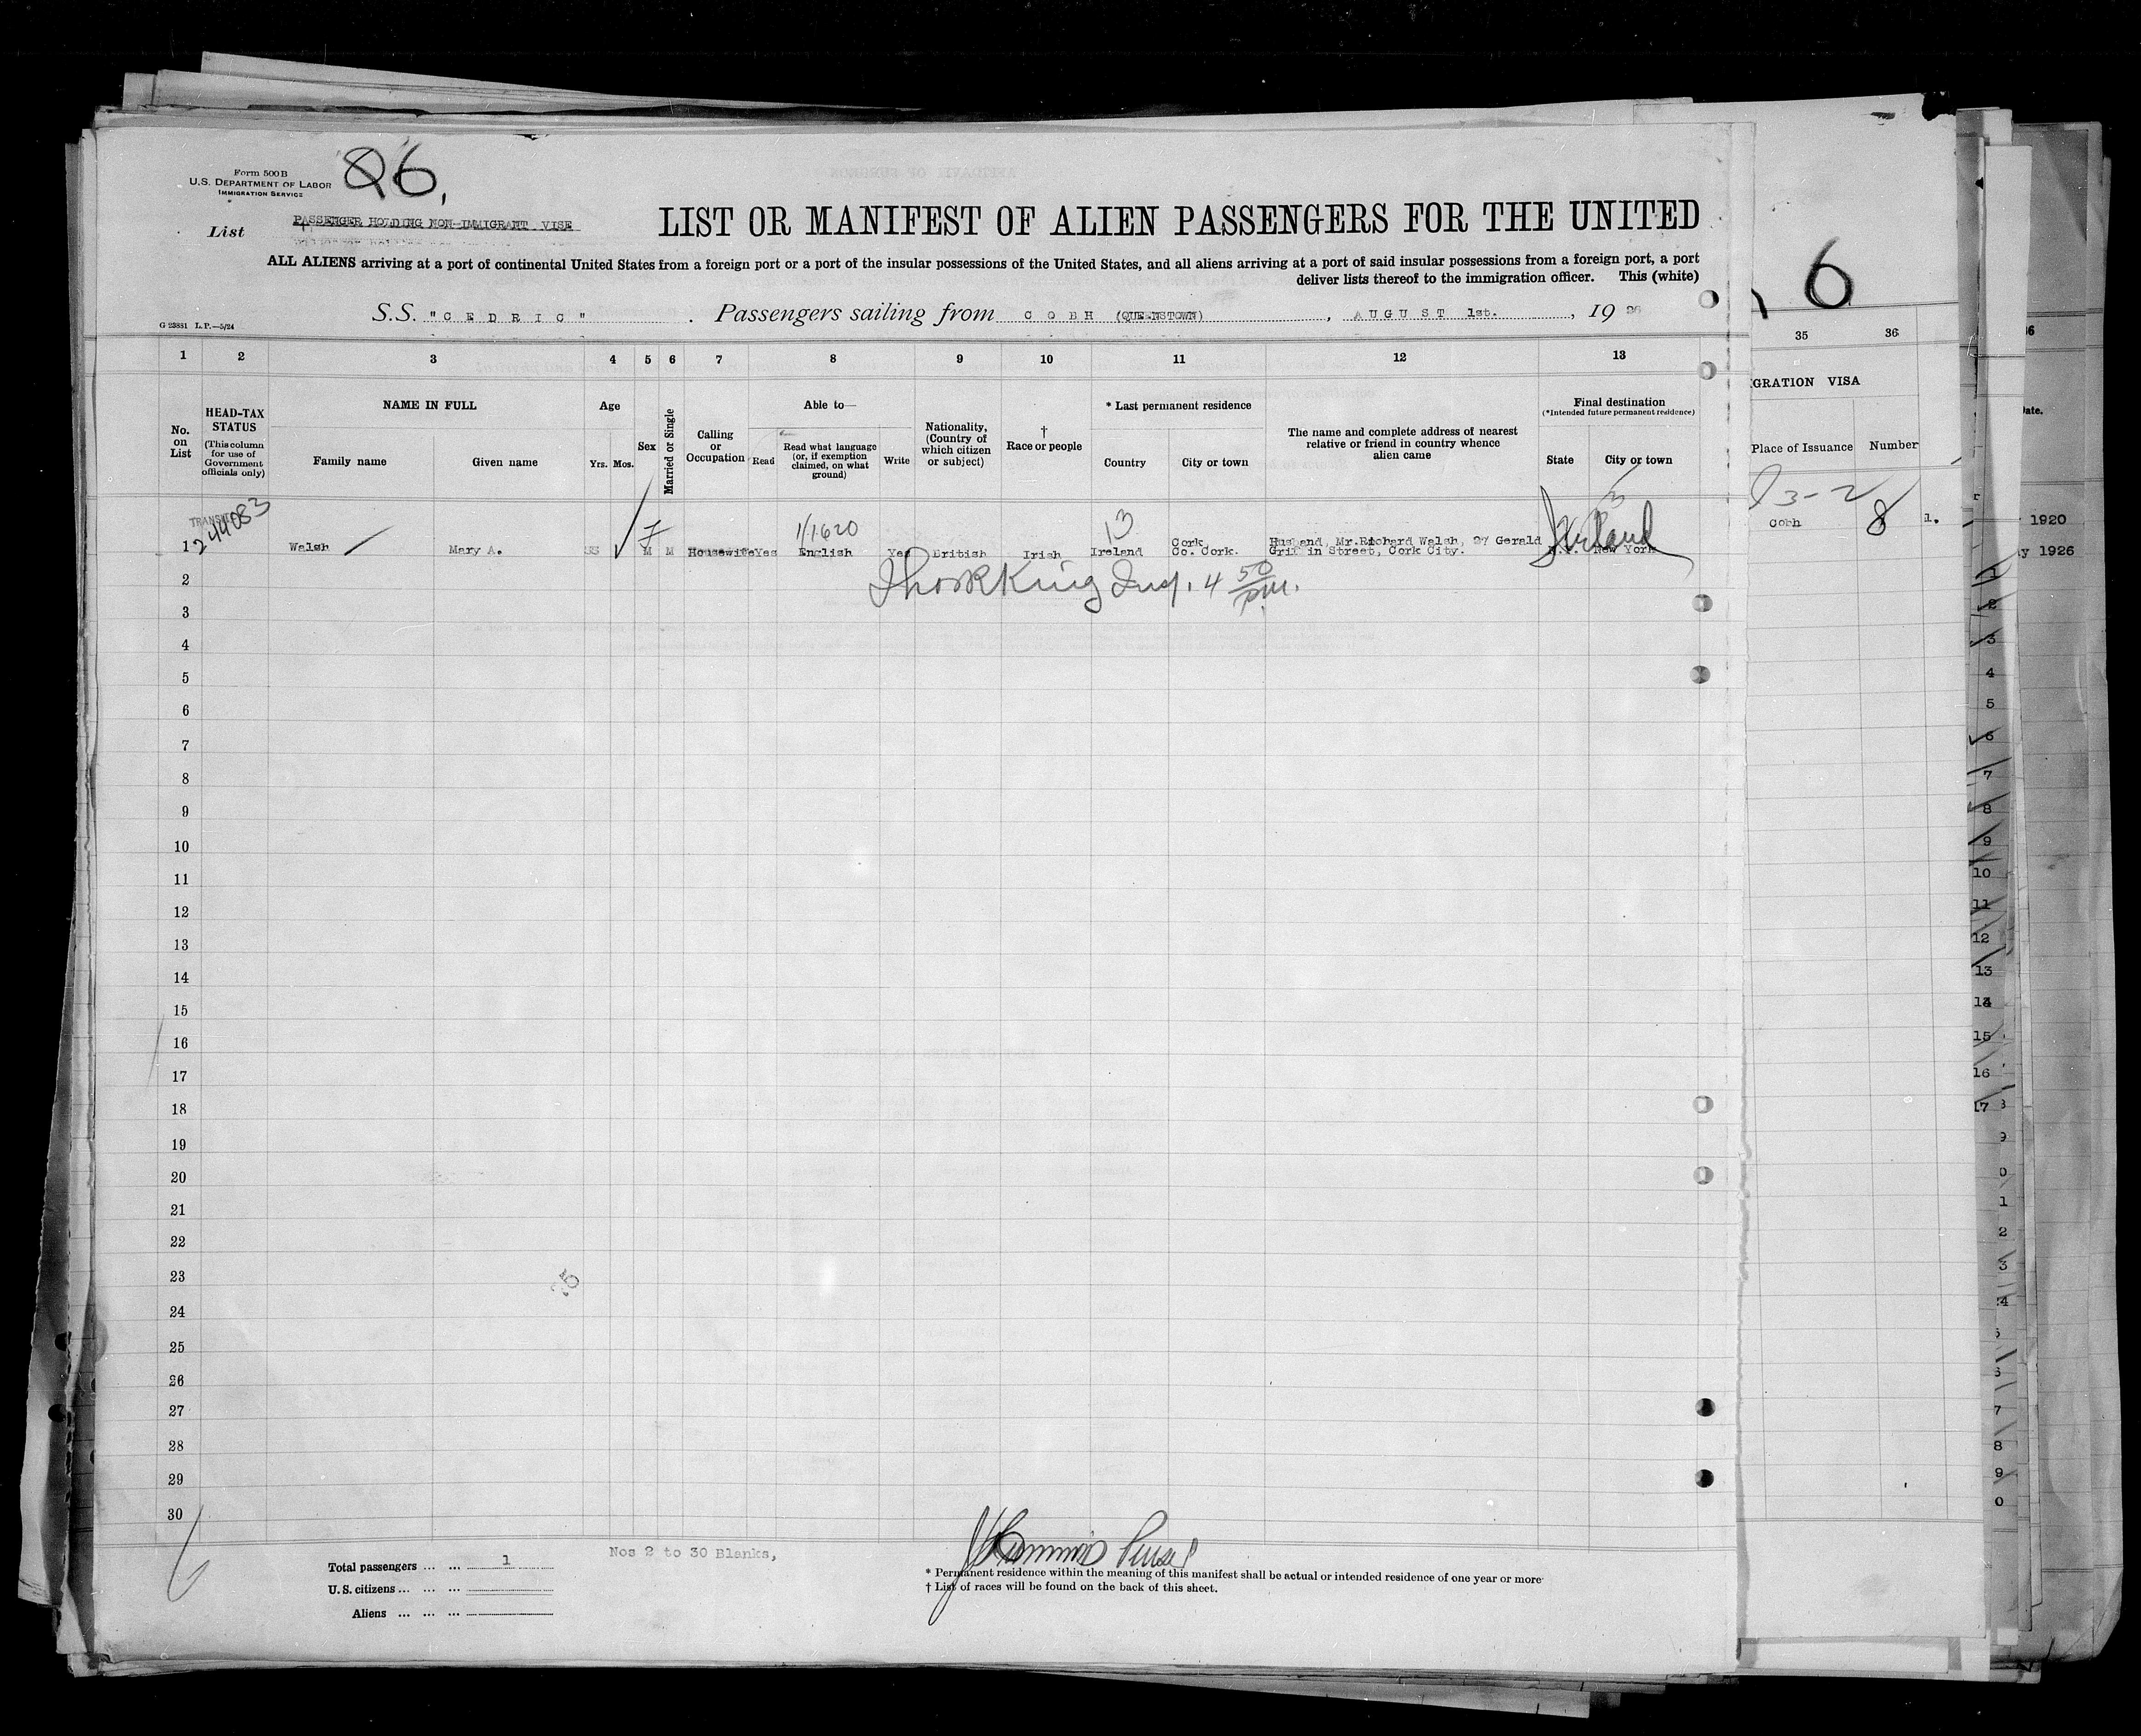 86.
Form 500B
U.S. DEPARTMENT OF LABOR
IMMIGRATION SERVICE
List
PASSENGER HOLDING NON-IMMIGRANT VISE
LIST OR MANIFEST OF ALIEN PASSENGERS FOR THE UNITED
ALL ALIENS arriving at a port of continental United States from a foreign port or a port of the insular possessions of the United States, and all aliens arriving at a port of said insular possessions from a foreign port, a port
deliver lists thereof to the immigration officer. This (white)
S.S. "CEDRIC" . Passengers sailing from COBH (QUEENSTOWN) , AUGUST 1st. , 19 26
G 23881 L.P.—5/24
1 2 3 4 5 6 7 8 9 10 11 12 13
No. on List
HEAD-TAX STATUS
(This column for use of Government officials only)
NAME IN FULL
Family name
Given name
Age
Yrs. Mos.
Sex
Married or Single
Calling or Occupation
Able to—
Read
Read what language (or, if exemption claimed, on what ground)
Write
Nationality, (Country of which citizen or subject)
†
Race or people
* Last permanent residence
Country
City or town
The name and complete address of nearest relative or friend in country whence alien came
Final destination
(*Intended future permanent residence)
State
City or town
TRANSIT
244083
1/1620
13
3
Ireland
F
1 Walsh Mary A. M M Housewife Yes English Yes British Irish Ireland Cork Co. Cork. Husband, Mr. Richard Walsh, 27 Gerald Griffin Street, Cork City. N.Y. New York
King Insp. 4 50/pm.
2
3
4
5
6
7
8
9
10
11
12
13
14
15
16
17
18
19
20
21
22
23
24
25
26
27
28
29
30
Total passengers ... ... 1
U.S. citizens ... ... ...
Aliens ... ... ...
Nos 2 to 30 Blanks,
Purser
* Permanent residence within the meaning of this manifest shall be actual or intended residence of one year or more
† List of races will be found on the back of this sheet.
6
35 36
GRATION VISA
Place of Issuance Number
Cobh 8 1.
1920
1926
1
2
3
4
5
6
7
8
9
10
11
12
13
14
15
16
17